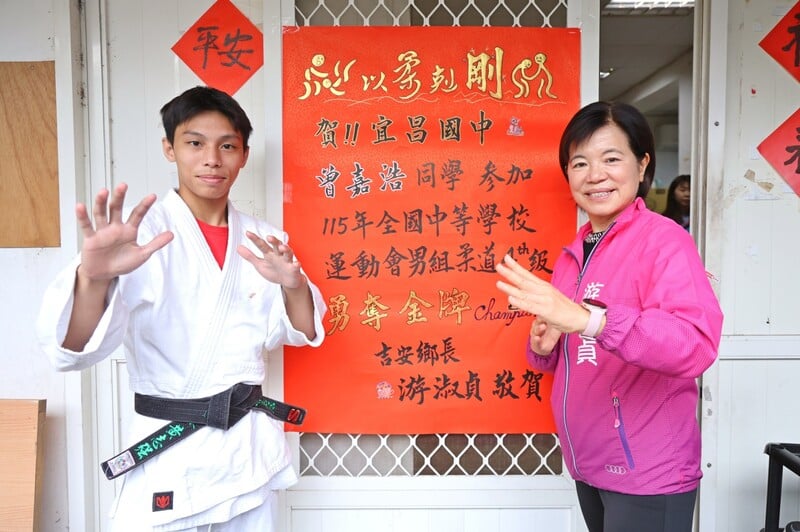 平安
以柔克剛
賀!! 宜昌國中
曾嘉浩 同學 參加
115年全國中等學校
運動會男組柔道 4th級
勇奪金牌 Champi
吉安鄉長
游淑貞 敬賀
游
貞